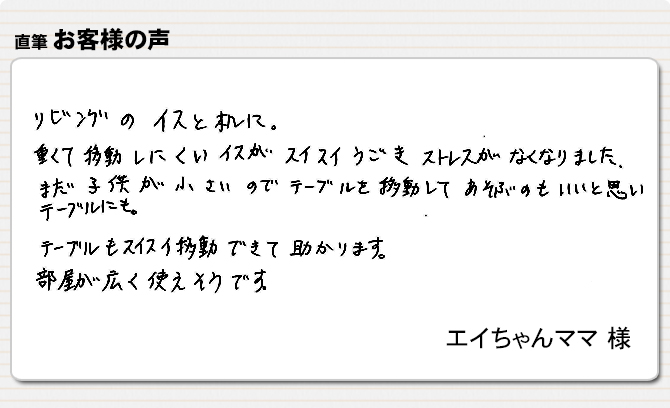 直筆 お客様の声
リビングの イスと机に。
重くて移動しにくいイスが スイスイうごき ストレスがなくなりました、
まだ子供が小さいのでテーブルを移動してあそぶのもいいと思い
テーブルにも。
テーブルもスイスイ移動できて助かります。
部屋が広く使えそうです。
エイちゃんママ 様